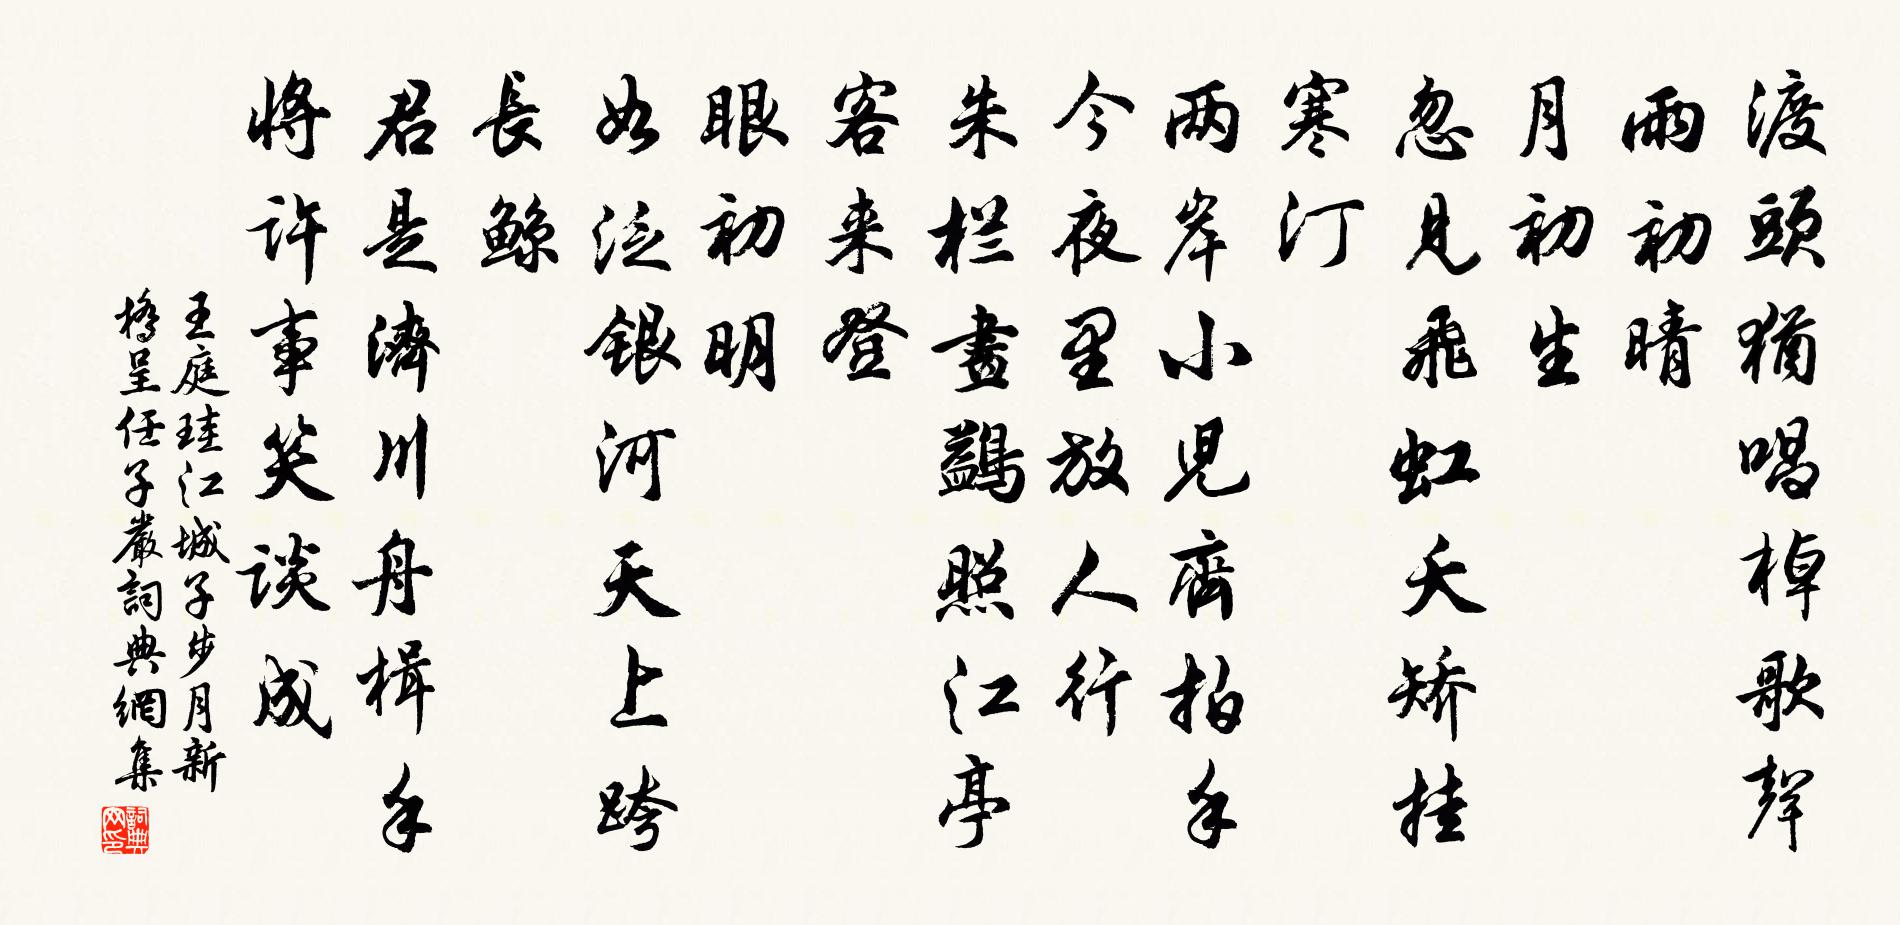 渡頭猶唱棹歌聲
雨初晴
月初生
忽見飛虹夭矯挂
寒汀
两岸小児齊拍手
今夜里放人行
朱栏畫鷁照江亭
客来登
眼初明
如泛银河天上跨
長鯨
君是濟川舟楫手
将许事笑谈成
王庭珪江城子步月新
橋呈任子嚴詞典網集
詞典
网印